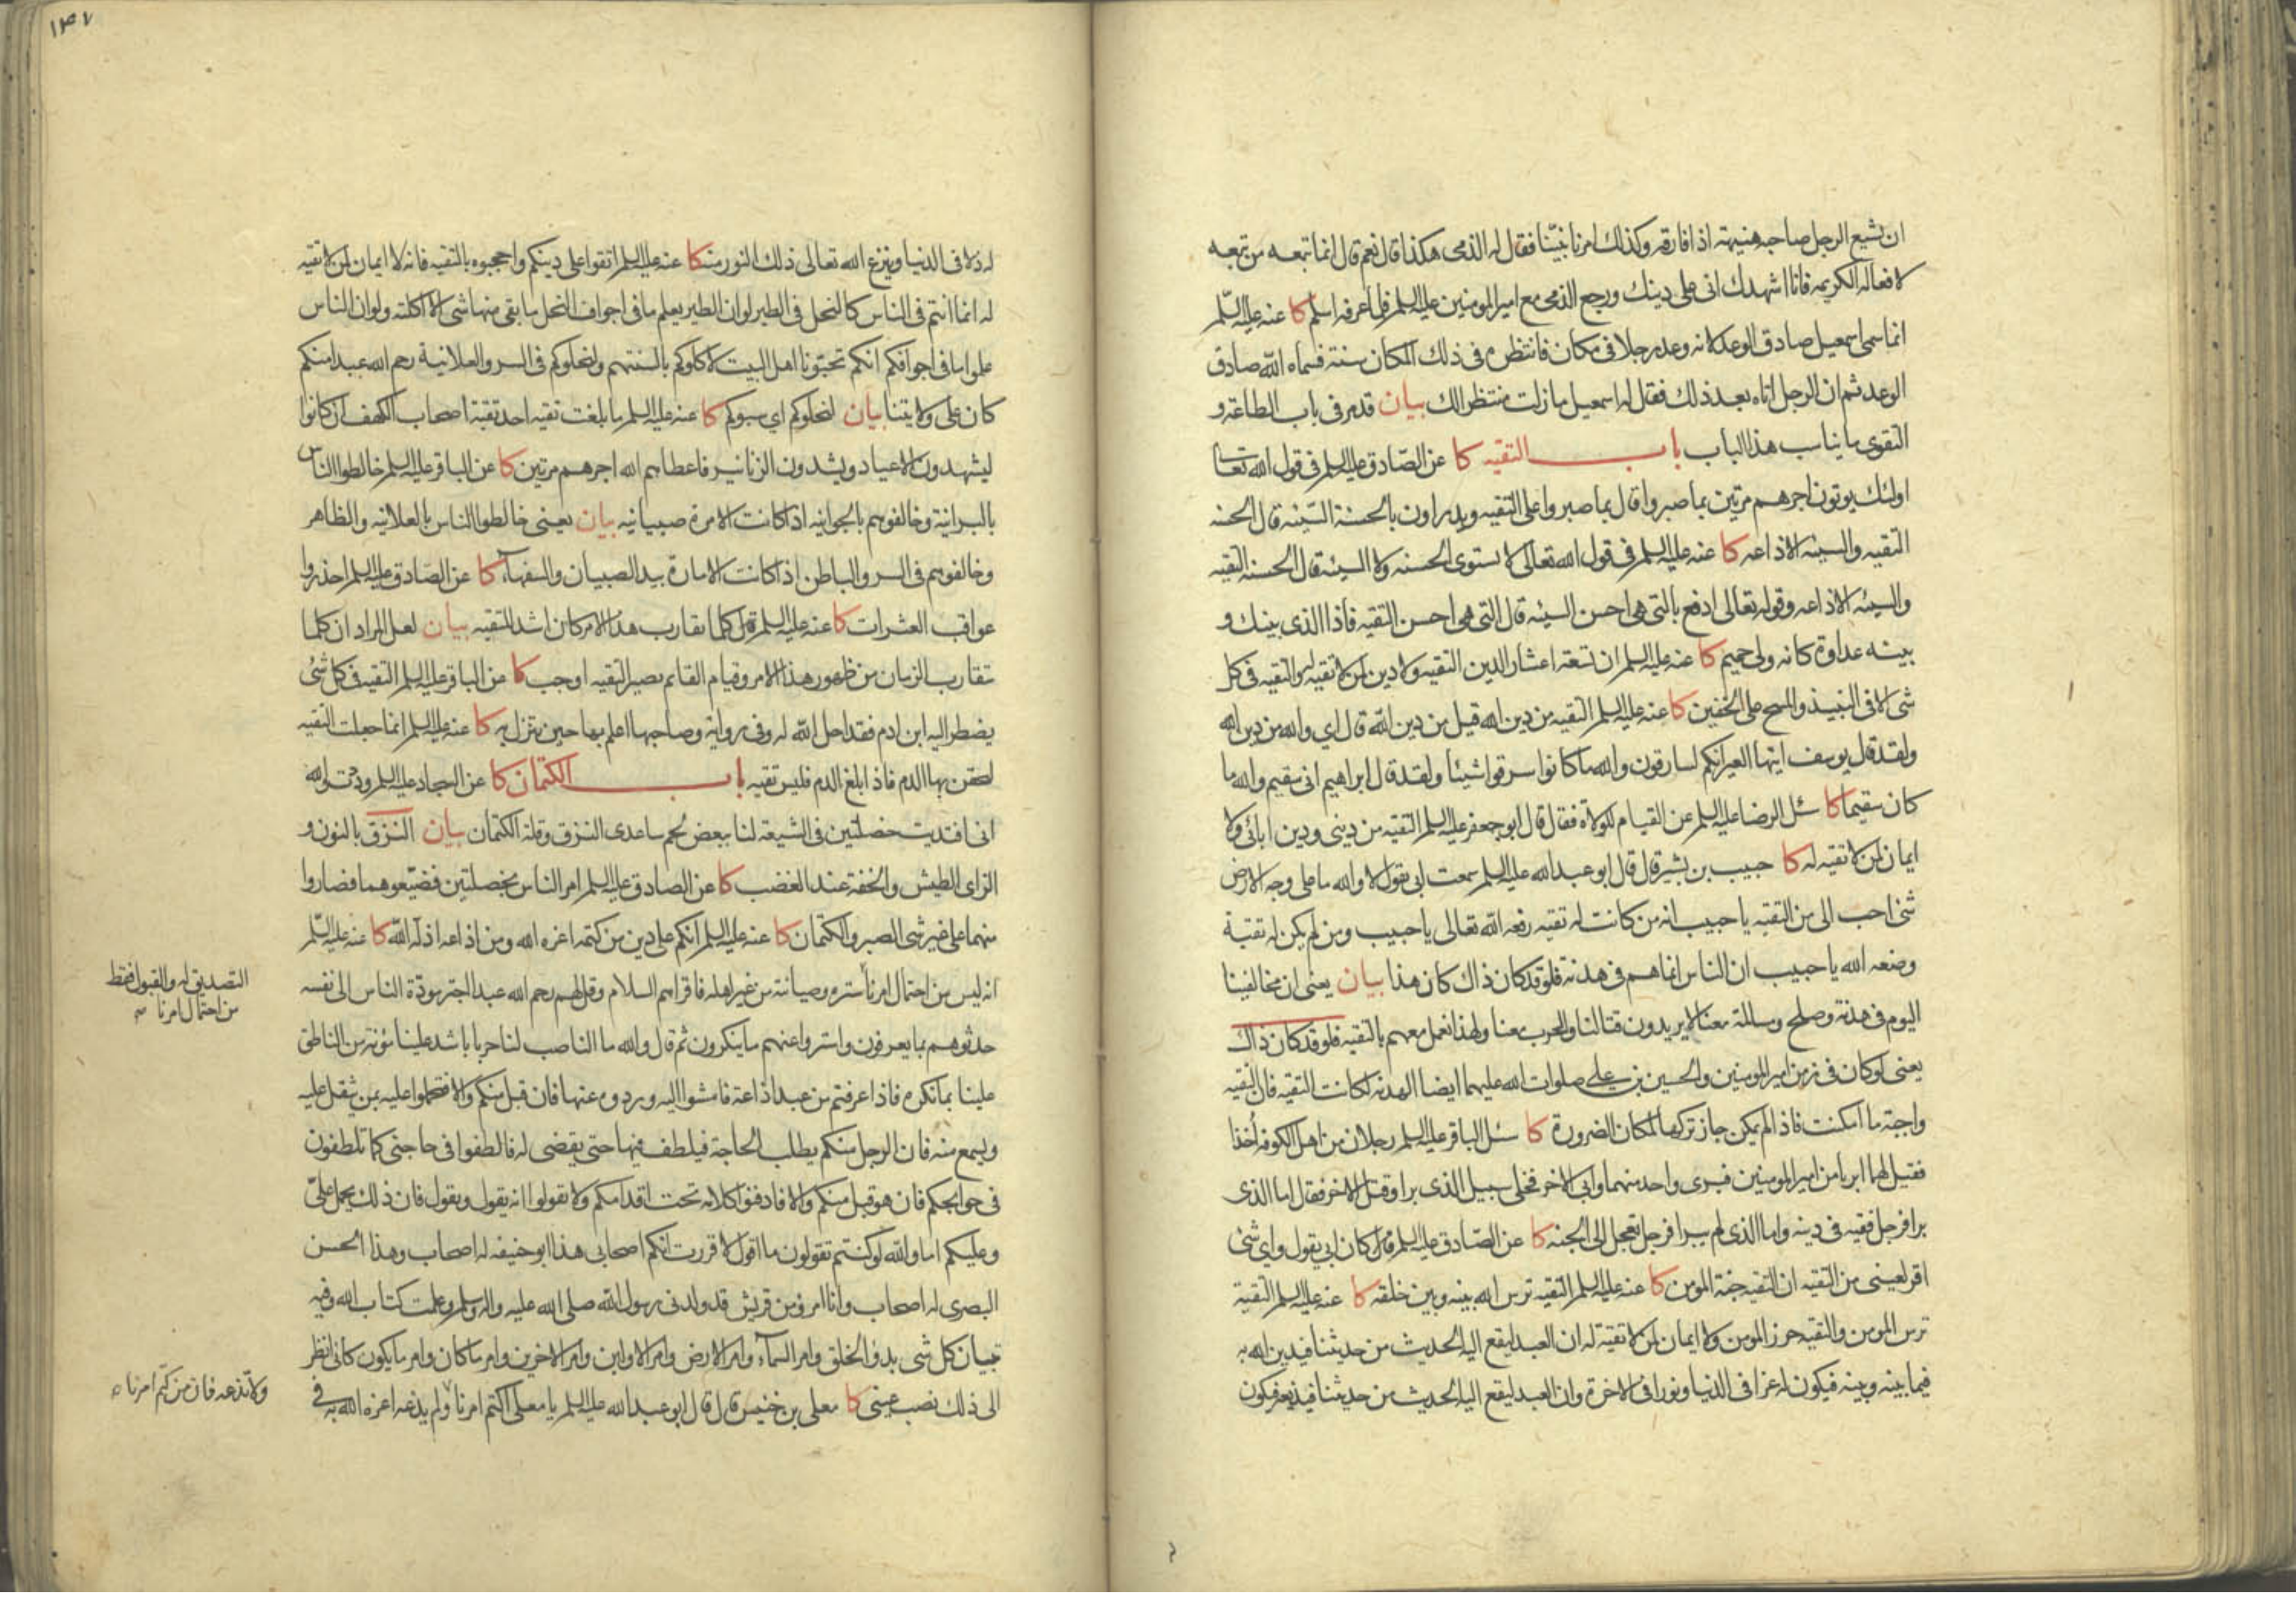 ان يشيع الرجل صاحبه هنيهة اذا فارقه وكذلك امرنا نبينا فقال له الذمى هكذا قال نعم قال انما تبعه من تبعه
لافعاله الكريمه فانا اشهدك انى على دينك ورجع الذمى مع امير المومنين عليه السلم فلما عرفه اسلم كا عنه عليه السّلم
انما سمى اسمعيل صادق الوعد لانه وعد رجلا فى مكان فانتظره فى ذلك المكان سنة فسماه الله صادق
الوعد ثم ان الرجل اتاه بعد ذلك فقال له اسمعيل ما زلت منتظرا لك بيان قد مر فى باب الطاعة و
التقوى ما يناسب هذا الباب باب التقيه كا عن الصّادق عليه السلم فى قول الله تعالى
اولئك يوتون اجرهم مرتين بما صبروا قال بما صبروا على التقيه ويدراون بالحسنة السّيئه قال الحسنه
التقيه والسيئه الاذاعه كا عنه عليه السلم فى قول الله تعالى لا تستوى الحسنه ولا السيئه قال الحسنه التقيه
والسيئه الاذاعه وقوله تعالى ادفع بالتى هى احسن السيئه قال التى هى احسن التقيه فاذا الذى بينك و
بينه عداوة كانه ولى حميم كا عنه عليه السلم ان تسعة اعشار الدين التقيه ولا دين لمن لا تقيه له والتقيه فى كل
شى الا فى النبيذ والمسح على الخفين كا عنه عليه السلم التقيه من دين الله قيل من دين الله قال اي والله من دين الله
ولقد قال يوسف ايتها العير انكم لسارقون والله ما كانوا سرقوا شيئا ولقد قال ابراهيم انى سقيم والله ما
كان سقيما كا سئل الرضا عليه السلم عن القيام للولاة فقال قال ابو جعفر عليه السلم التقيه من دينى ودين ابائى ولا
ايمان لمن لا تقيه له كا حبيب بن بشير قال قال ابو عبد الله عليه السلم سمعت ابى يقول لا والله ما على وجه الارض
شئ احب الى من التقيه يا حبيب انه من كانت له تقيه رفعه الله تعالى يا حبيب ومن لم يكن له تقية
وضعه الله يا حبيب ان الناس انما هم فى هدنة فلو قد كان ذاك كان هذا بيان يعنى ان مخالفينا
اليوم فى هدنة وصلح ومسالمة معنا لا يريدون قتالنا والحرب معنا ولهذا نعمل معهم بالتقيه فلو قد كان ذاك
يعنى لو كان فى زمن امير المومنين والحسين بن على صلوات الله عليهما ايضا الهدنه لكانت التقيه فان التقيه
واجبة ما امكنت فاذا لم يمكن جاز تركها لمكان الضرورة كا سئل الباقر عليه السلم رجلان من اهل الكوفه أخذا
فقيل لهما ابريا من امير المومنين فبرى واحد منهما وابى الاخر فخلى سبيل الذى برا وقتل الاخر فقال اما الذى
برا فرجل فقيه فى دينه واما الذى لم يبرا فرجل تعجل الى الجنه كا عن الصّادق عليه السلم قال كان ابى يقول واي شئ
اقر لعينى من التقيه ان التقيه جنة المومن كا عنه عليه السلم التقيه ترس الله بينه وبين خلقه كا عنه عليه السلم التقية
ترس المومن والتقيه حرز المومن ولا ايمان لمن لا تقية له ان العبد ليقع اليه الحديث من حديثنا فيدين الله به
فيما بينه وبينه فيكون له عزا فى الدنيا ونورا فى الاخرة وان العبد ليقع اليه الحديث من حديثنا فيذيعه فيكون
١٤٧
له ذلا فى الدنيا وينزع الله تعالى ذلك النور منه كا عنه عليه السلم اتقوا على دينكم واحجبوه بالتقيه فانه لا ايمان لمن لا تقيه
له انما انتم فى الناس كالنحل فى الطير لو ان الطير يعلم ما فى اجواف النحل ما بقى منها شى الا اكلته ولو ان الناس
علموا ما فى اجوافكم انكم تحبّونا اهل البيت لاكلوكم بالسنتهم ولنحلوكم فى السر والعلانية رحم الله عبدا منكم
كان على ولايتنا بيان لنحلوكم اي سبوكم كا عنه عليه السلم ما بلغت تقيه احد تقية اصحاب الكهف ان كانوا
ليشهدون الاعياد ويشدون الزنانير فاعطاهم الله اجرهم مرتين كا عن الباقر عليه السلم خالطوا الناس
بالبرانية وخالفوهم بالجوانيه اذا كانت الامرة صبيانيه بيان يعنى خالطوا الناس بالعلانيه والظاهر
وخالفوهم فى السر والباطن اذا كانت الامارة بيد الصبيان والسفهاء كا عن الصّادق عليه السلم احذروا
عواقب العثرات كا عنه عليه السلم قال كلما تقارب هذا الامر كان اشد للتقيه بيان لعل المراد ان كلما
تقارب الزمان من ظهور هذا الامر وقيام القايم يصير التقيه اوجب كا عن الباقر عليه السلم التقيه فى كل شئ
يضطر اليه ابن ادم فقد احل الله له وفى رواية وصاحبها اعلم بها حين تنزل به كا عنه عليه السلم انما جعلت التقيه
لحقن بها الدم فاذا بلغ الدم فليس تقيه باب الكتمان كا عن السجاد عليه السلم وددت والله
انى افتديت خصلتين فى الشيعة لنا ببعض لحم ساعدى النزق وقلة الكتمان بيان النزق بالنون و
الزاى الطيش والخفة عند الغضب كا عن الصادق عليه السلم امر الناس بخصلتين فضيّعوهما فصاروا
منهما على غير شى الصبر والكتمان كا عنه عليه السلم انكم على دين من كتمه اعزه الله ومن اذاعه اذله الله كا عنه عليه السّلم
انه ليس من احتمال امرنا ستره وصيانته من غير اهله فاقراهم السلام وقل لهم رحم الله عبدا اجتر مودّة الناس الى نفسه
حدثوهم بما يعرفون واستروا عنهم ما ينكرون ثم قال والله ما الناصب لنا حربا باشد علينا مؤنة من الناطق
علينا بما نكره فاذا عرفتم من عبد اذاعة فامشوا اليه وردوه عنها فان قبل منكم والا فتحملوا عليه بمن يثقل عليه
ويسمع منه فان الرجل منكم يطلب الحاجة فيلطف فيها حتى يقضى له فالطفوا فى حاجتى كما تلطفون
فى حوايجكم فان هو قبل منكم والا فادفنوا كلامه تحت اقدامكم ولا تقولوا انه يقول ويقول فان ذلك يحمل علىّ
وعليكم اما والله لو كنتم تقولون ما اقول لاقررت انكم اصحابى هذا ابو حنيفه له اصحاب وهذا الحسن
البصرى له اصحاب وانا امرؤ من قريش قد ولدنى رسول الله صلى الله عليه واله وسلم وعلمت كتاب الله وفيه
تبيان كل شى بدؤ الخلق وامر السماء وامر الارض وامر الاولين وامر الاخرين وامر ما كان وامر ما يكون كانى انظر
الى ذلك نصب عينى كا معلى بن خنيس قال قال ابو عبد الله عليه السلم يا معلى اكتم امرنا ولم يذعه اعزه الله به فى
التصديق له والقبول فقط
من احتمال امرنا
ولا تذعه فان من كتم امرنا